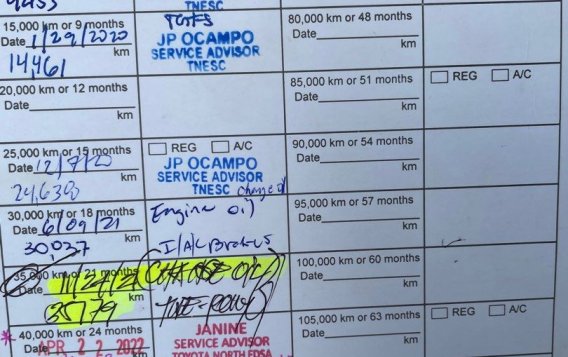 TNESC
15,000 km or 9 months
Date 1/29/2020
km
14,461
JP OCAMPO
SERVICE ADVISOR
TNESC
80,000 km or 48 months
Date
km
20,000 km or 12 months
Date
km
85,000 km or 51 months
Date
km
REG A/C
25,000 km or 15 months
Date 12/7/20
km
24,638
REG A/C
JP OCAMPO
SERVICE ADVISOR
TNESC change oil
90,000 km or 54 months
Date
km
30,000 km or 18 months
Date 6/09/21
km
30,037
Engine oil
95,000 km or 57 months
Date
km
35,000 km or 21 months
Date 11/27/21
km
35779
CHANGE OIL
TUNE-
100,000 km or 60 months
Date
km
40,000 km or 24 months
Date APR 22 2022
JANINE
SERVICE ADVISOR
TOYOTA NORTH EDSA
105,000 km or 63 months
Date
km
REG A/C